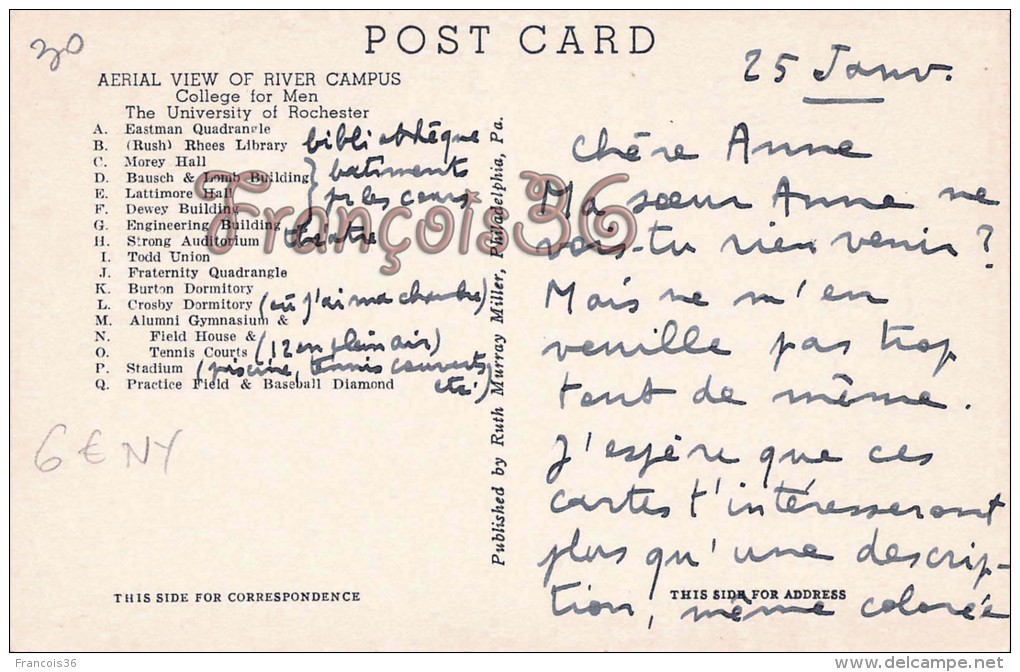 30
POST CARD
25 Janv.
AERIAL VIEW OF RIVER CAMPUS
College for Men
The University of Rochester
A. Eastman Quadrangle
B. (Rush) Rhees Library bibliothêque
C. Morey Hall
D. Bausch & Lomb Building } batiments
E. Lattimore Hall } pr les cours
F. Dewey Building
G. Engineering Building
H. Strong Auditorium théatre
I. Todd Union
J. Fraternity Quadrangle
K. Burton Dormitory
L. Crosby Dormitory (où j'ai ma chambre)
M. Alumni Gymnasium &
N. Field House &
O. Tennis Courts (12 en plein air)
P. Stadium (piscine, tennis couverts,
Q. Practice Field & Baseball Diamond etc)
6 € NY
THIS SIDE FOR CORRESPONDENCE
Published by Ruth Murray Miller, Philadelphia, Pa.
Chère Anne
Ma sœur Anne ne
vois-tu rien venir ?
Mais ne m'en
veuille pas trop
tout de même.
J'espère que ces
cartes t'intéresseront
plus qu'une descrip-
tion, même colorée
THIS SIDE FOR ADDRESS
François36
Francois36
www.delcampe.net